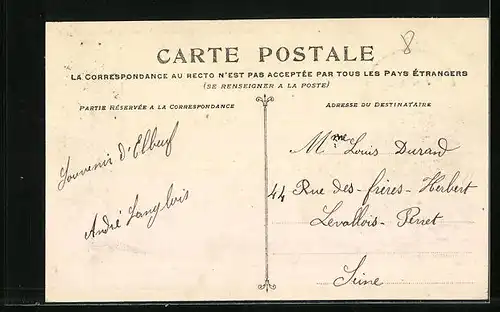 8
CARTE POSTALE
LA CORRESPONDANCE AU RECTO N'EST PAS ACCEPTÉE PAR TOUS LES PAYS ÉTRANGERS
(SE RENSEIGNER A LA POSTE)
PARTIE RÉSERVÉE A LA CORRESPONDANCE
Souvenir d'Elbeuf
André Langlois
ADRESSE DU DESTINATAIRE
Mme Louis Durand
44 Rue des-frères-Herbert
Levallois-Perret
Seine